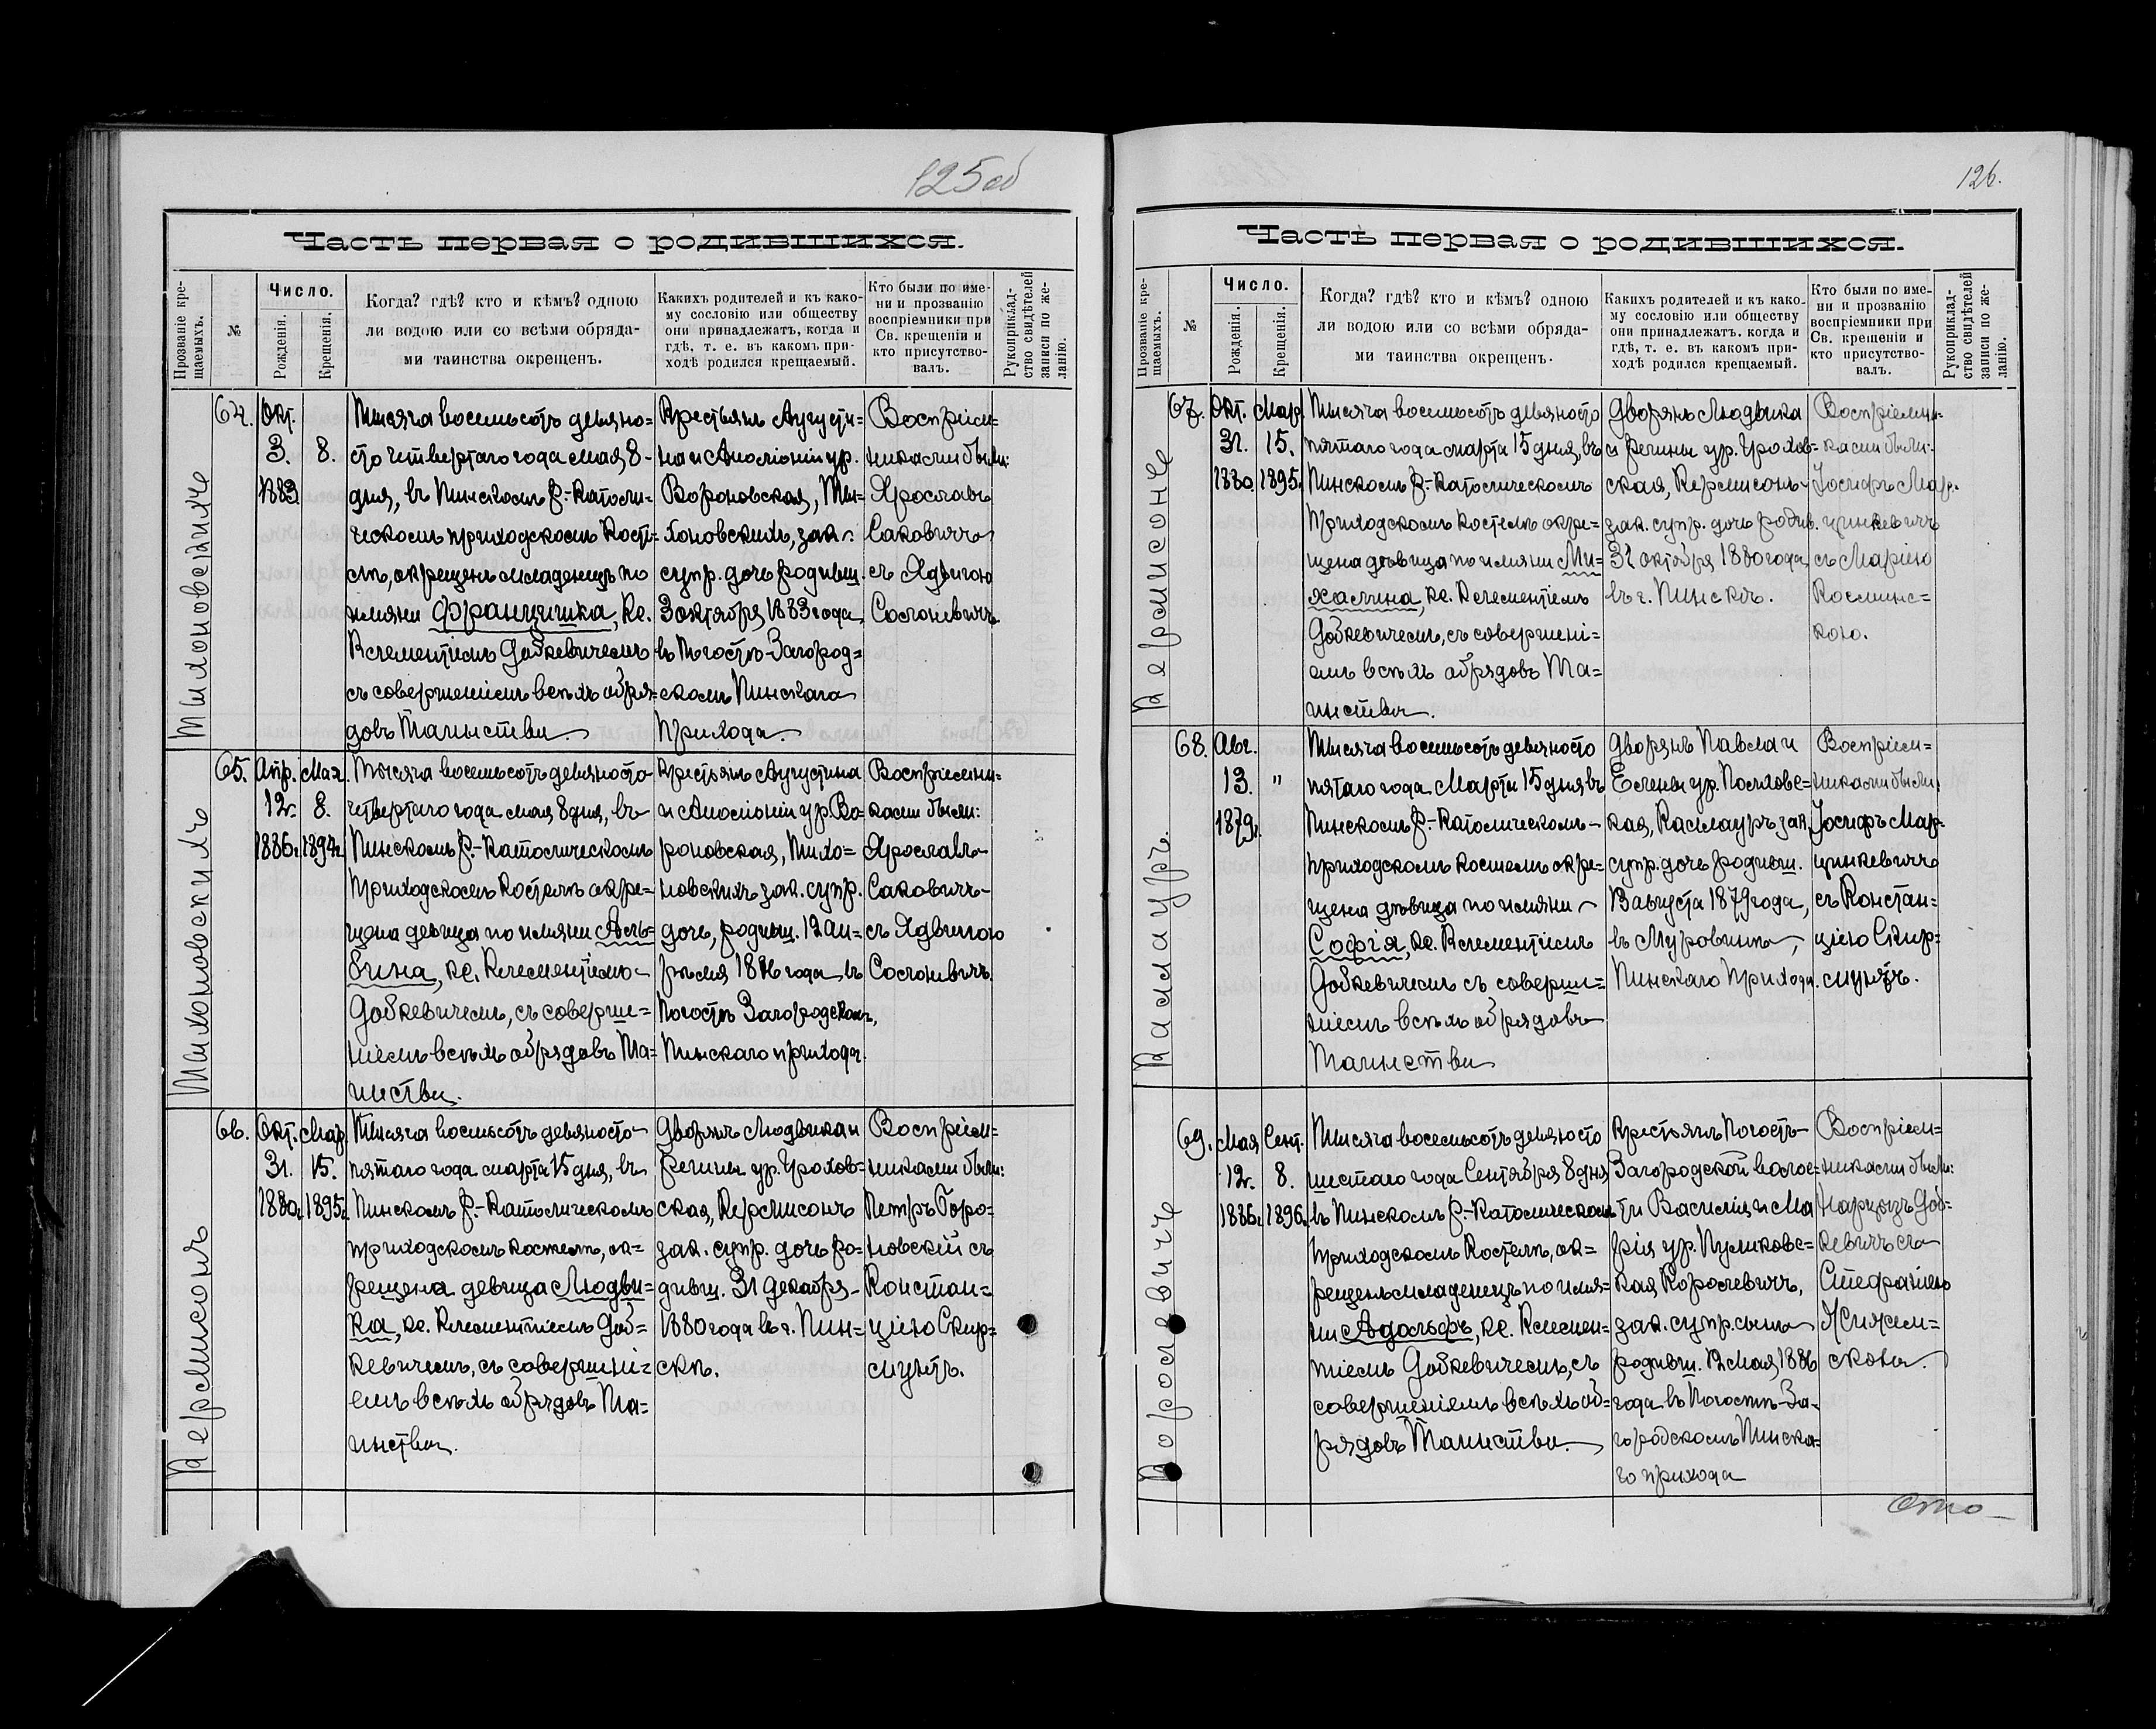 125об
Часть первая о родившихся.
Прозваніе кре-
щаемыхъ.
№
Число.
Рожденія.
Крещенія.
Когда? гдѣ? кто и кѣмъ? одною
ли водою или со всѣми обряда-
ми таинства окрещенъ.
Какихъ родителей и къ како-
му сословію или обществу
они принадлежатъ, когда и
гдѣ, т. е. въ какомъ при-
ходѣ родился крещаемый.
Кто были по име-
ни и прозванію
воспріемники при
Св. крещеніи и
кто присутство-
валъ.
Рукоприклад-
ство свидѣтелей
записи по же-
ланію.
Тихоновскихъ
64.
Окт.
3.
1883
8.
Тысяча восемьсотъ девяно-
сто четвертаго года мая 8-
дня, въ Пинскомъ Р.-Католи-
ческомъ приходскомъ Косте-
лѣ, окрещенъ младенецъ по
имяни Францишка, Кс.
Клементіемъ Добкевичемъ
съ совершеніемъ всѣхъ обря-
довъ Таинства.
Крестьянъ Августи-
на и Аполоніи ур.
Вороновская, Ти-
хоновскихъ, зак.
супр. дочь родивш.
3 октября 1883 года,
въ Погостѣ-Загород-
скомъ Пинскаго
прихода.
Воспріем-
никами были:
Ярославъ
Саковичъ
съ Ядвигою
Сологевичъ
Тихоновскихъ
65.
Апр.
12.
1886г.
Мая.
8.
1894г.
Тысяча восемьсотъ девяносто
четвертаго года мая 8 дня, въ
Пинскомъ Р.-Католическомъ
приходскомъ Костелѣ окре-
щена девица по имяни Аль-
бина, Кс. Клементіемъ
Добкевичемъ, съ соверше-
ніемъ всѣхъ обрядовъ Та-
инства.
Крестьянъ Августина
и Аполоніи ур. Во-
роновская, Тихо-
новскихъ зак. супр.
дочь, родивш. 12 ап-
рѣля 1886 года въ
Погостѣ Загородскомъ,
Пинскаго прихода.
Воспріемни-
ками были:
Ярославъ
Саковичъ
съ Ядвигою
Сологевичъ.
Кермисонъ
66.
Окт.
31.
1880г.
Мар.
15.
1895г.
Тысяча восемьсотъ девяносто
пятаго года марта 15 дня, въ
Пинскомъ Р.-Католическомъ
приходскомъ костелѣ, ок-
рещена девица Людви-
ка, Кс. Клементіемъ Доб-
кевичемъ, съ совершені-
емъ всѣхъ обрядовъ Та-
инства.
Дворянъ Людвика и
Регины ур. Грохов-
ская, Кермисонъ
зак. супр. дочь ро-
дивш. 31 декабря
1880 года въ г. Пин-
скѣ.
Воспріем-
никами были:
Петръ Горо-
новскій съ
Констан-
ціею Скир-
мунтъ.
126.
Часть первая о родившихся.
Прозваніе кре-
щаемыхъ.
№
Число.
Рожденія.
Крещенія.
Когда? гдѣ? кто и кѣмъ? одною
ли водою или со всѣми обряда-
ми таинства окрещенъ.
Какихъ родителей и къ како-
му сословію или обществу
они принадлежатъ. когда и
гдѣ, т. е. въ какомъ при-
ходѣ родился крещаемый.
Кто были по име-
ни и прозванію
воспріемники при
Св. крещеніи и
кто присутство-
валъ.
Рукоприклад-
ство свидѣтелей
записи по же-
ланію.
Кермисонъ
67.
Окт.
31.
1880.
Мар.
15.
1895.
Тысяча восемьсотъ девяносто
пятаго года марта 15 дня, въ
Пинскомъ Р.-Католическомъ
приходскомъ костелѣ окре-
щена дѣвица по имяни Ми-
халина, Кс. Клементіемъ
Добкевичемъ, съ совершені-
емъ всѣхъ обрядовъ Та-
инства.
Дворянъ Людвика
и Регины ур. Грохов-
ская, Кермисонъ
зак. супр. дочь родив.
31 октября 1880 года
въ г. Пинскѣ.
Воспріемни-
ками были:
Іосифъ Мар-
цинкевичъ
съ Маріею
Косминс-
кою.
Каллауръ.
68.
Авг.
13.
1879г.
"
Тысяча восемьсотъ девяносто
пятаго года Марта 15 дня въ
Пинскомъ Р.-Католическомъ
приходскомъ костелѣ окре-
щена дѣвица по имяни
Софія, Кс. Клементіемъ
Добкевичемъ съ соверше-
ніемъ всѣхъ обрядовъ
Таинства
Дворянъ Павла и
Елены ур. Полховс-
кая, Каллауръ зак.
супр. дочь родивш.
13 августа 1879 года,
въ Муровинѣ,
Пинскаго прихода.
Воспріем-
никами были:
Іосифъ Мар-
цинкевичъ
съ Констан-
ціею Скир-
мунтъ.
Королевичъ
69.
Мая
12.
1886г.
Сент.
8.
1896.
Тысяча восемьсотъ девяносто
шестаго года Сентября 8 дня
въ Пинскомъ Р.-Католическомъ
приходскомъ Костелѣ, ок-
рещенъ младенецъ по имя-
ни Адольфъ, Кс. Клемен-
тіемъ Добкевичемъ, съ
совершеніемъ всѣхъ об-
рядовъ Таинства.
Крестьянъ Погостъ-
Загородской волос-
ти Василія и Ма
рія ур. Куликовс-
кая Королевичъ,
зак. супр. сынъ
родивш. 12 Мая 1886
года въ Погостѣ-За-
городскомъ Пинска-
го прихода
Воспріем-
никами были:
Нарцызъ Доб-
кевичъ съ
Стефаніею
скою.